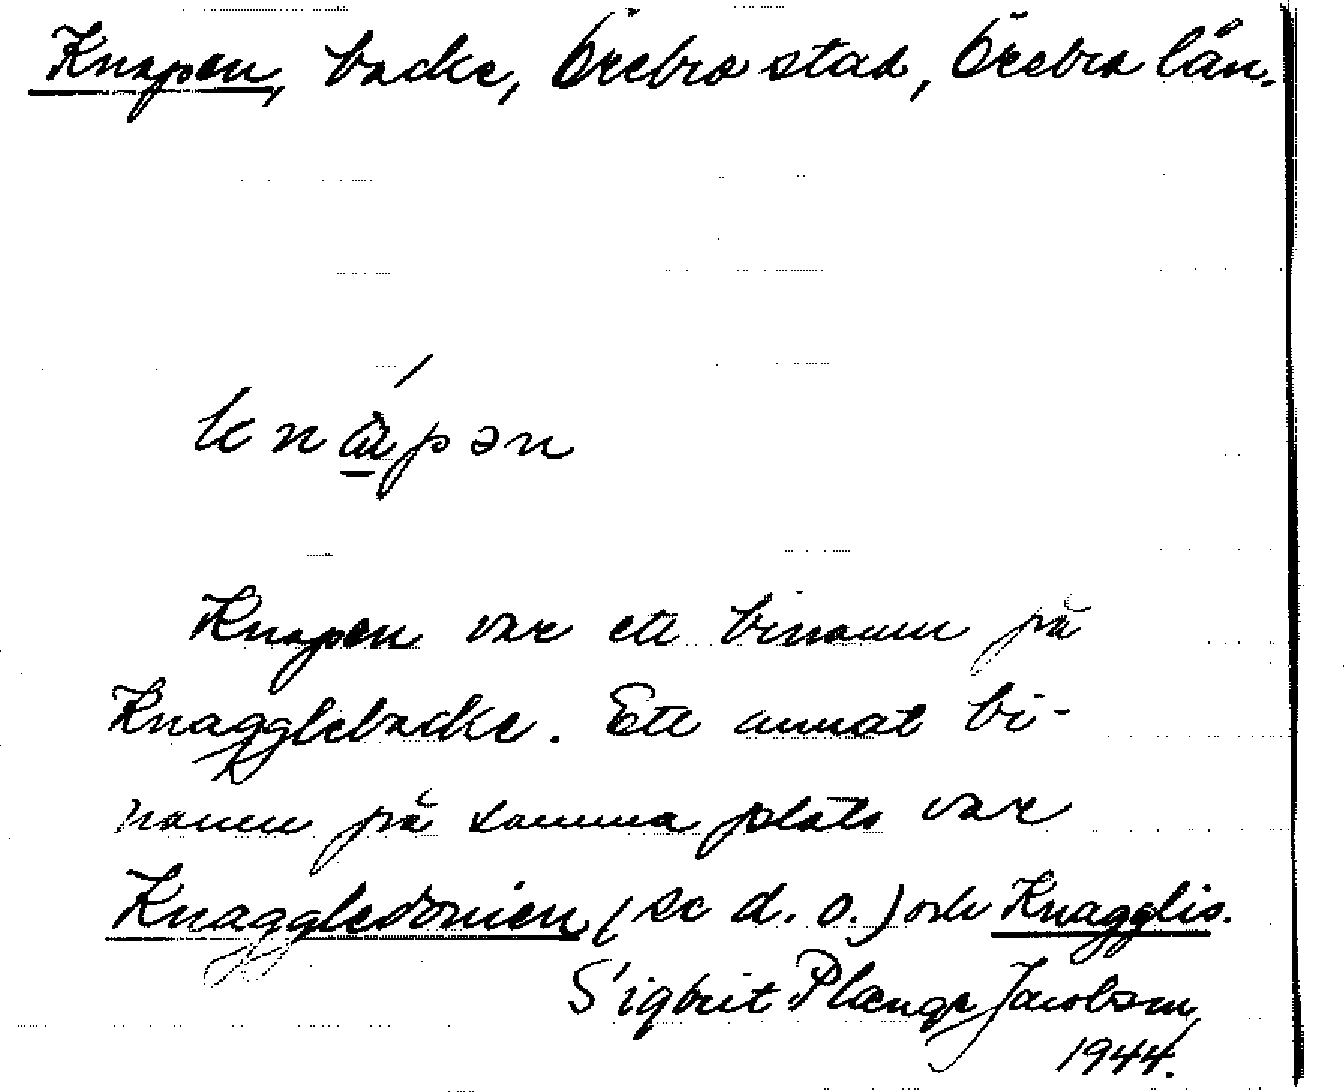 Knapen, backe, Örebro stad, Örebro län.
knápən
Knapen var ett binamn på
Knagglebacke. Ett annat bi-
namn på samma plats var
Knaggledonien (se d. o.) och Knagglis.
Sigbrit Plænge Jacobson,
1944.